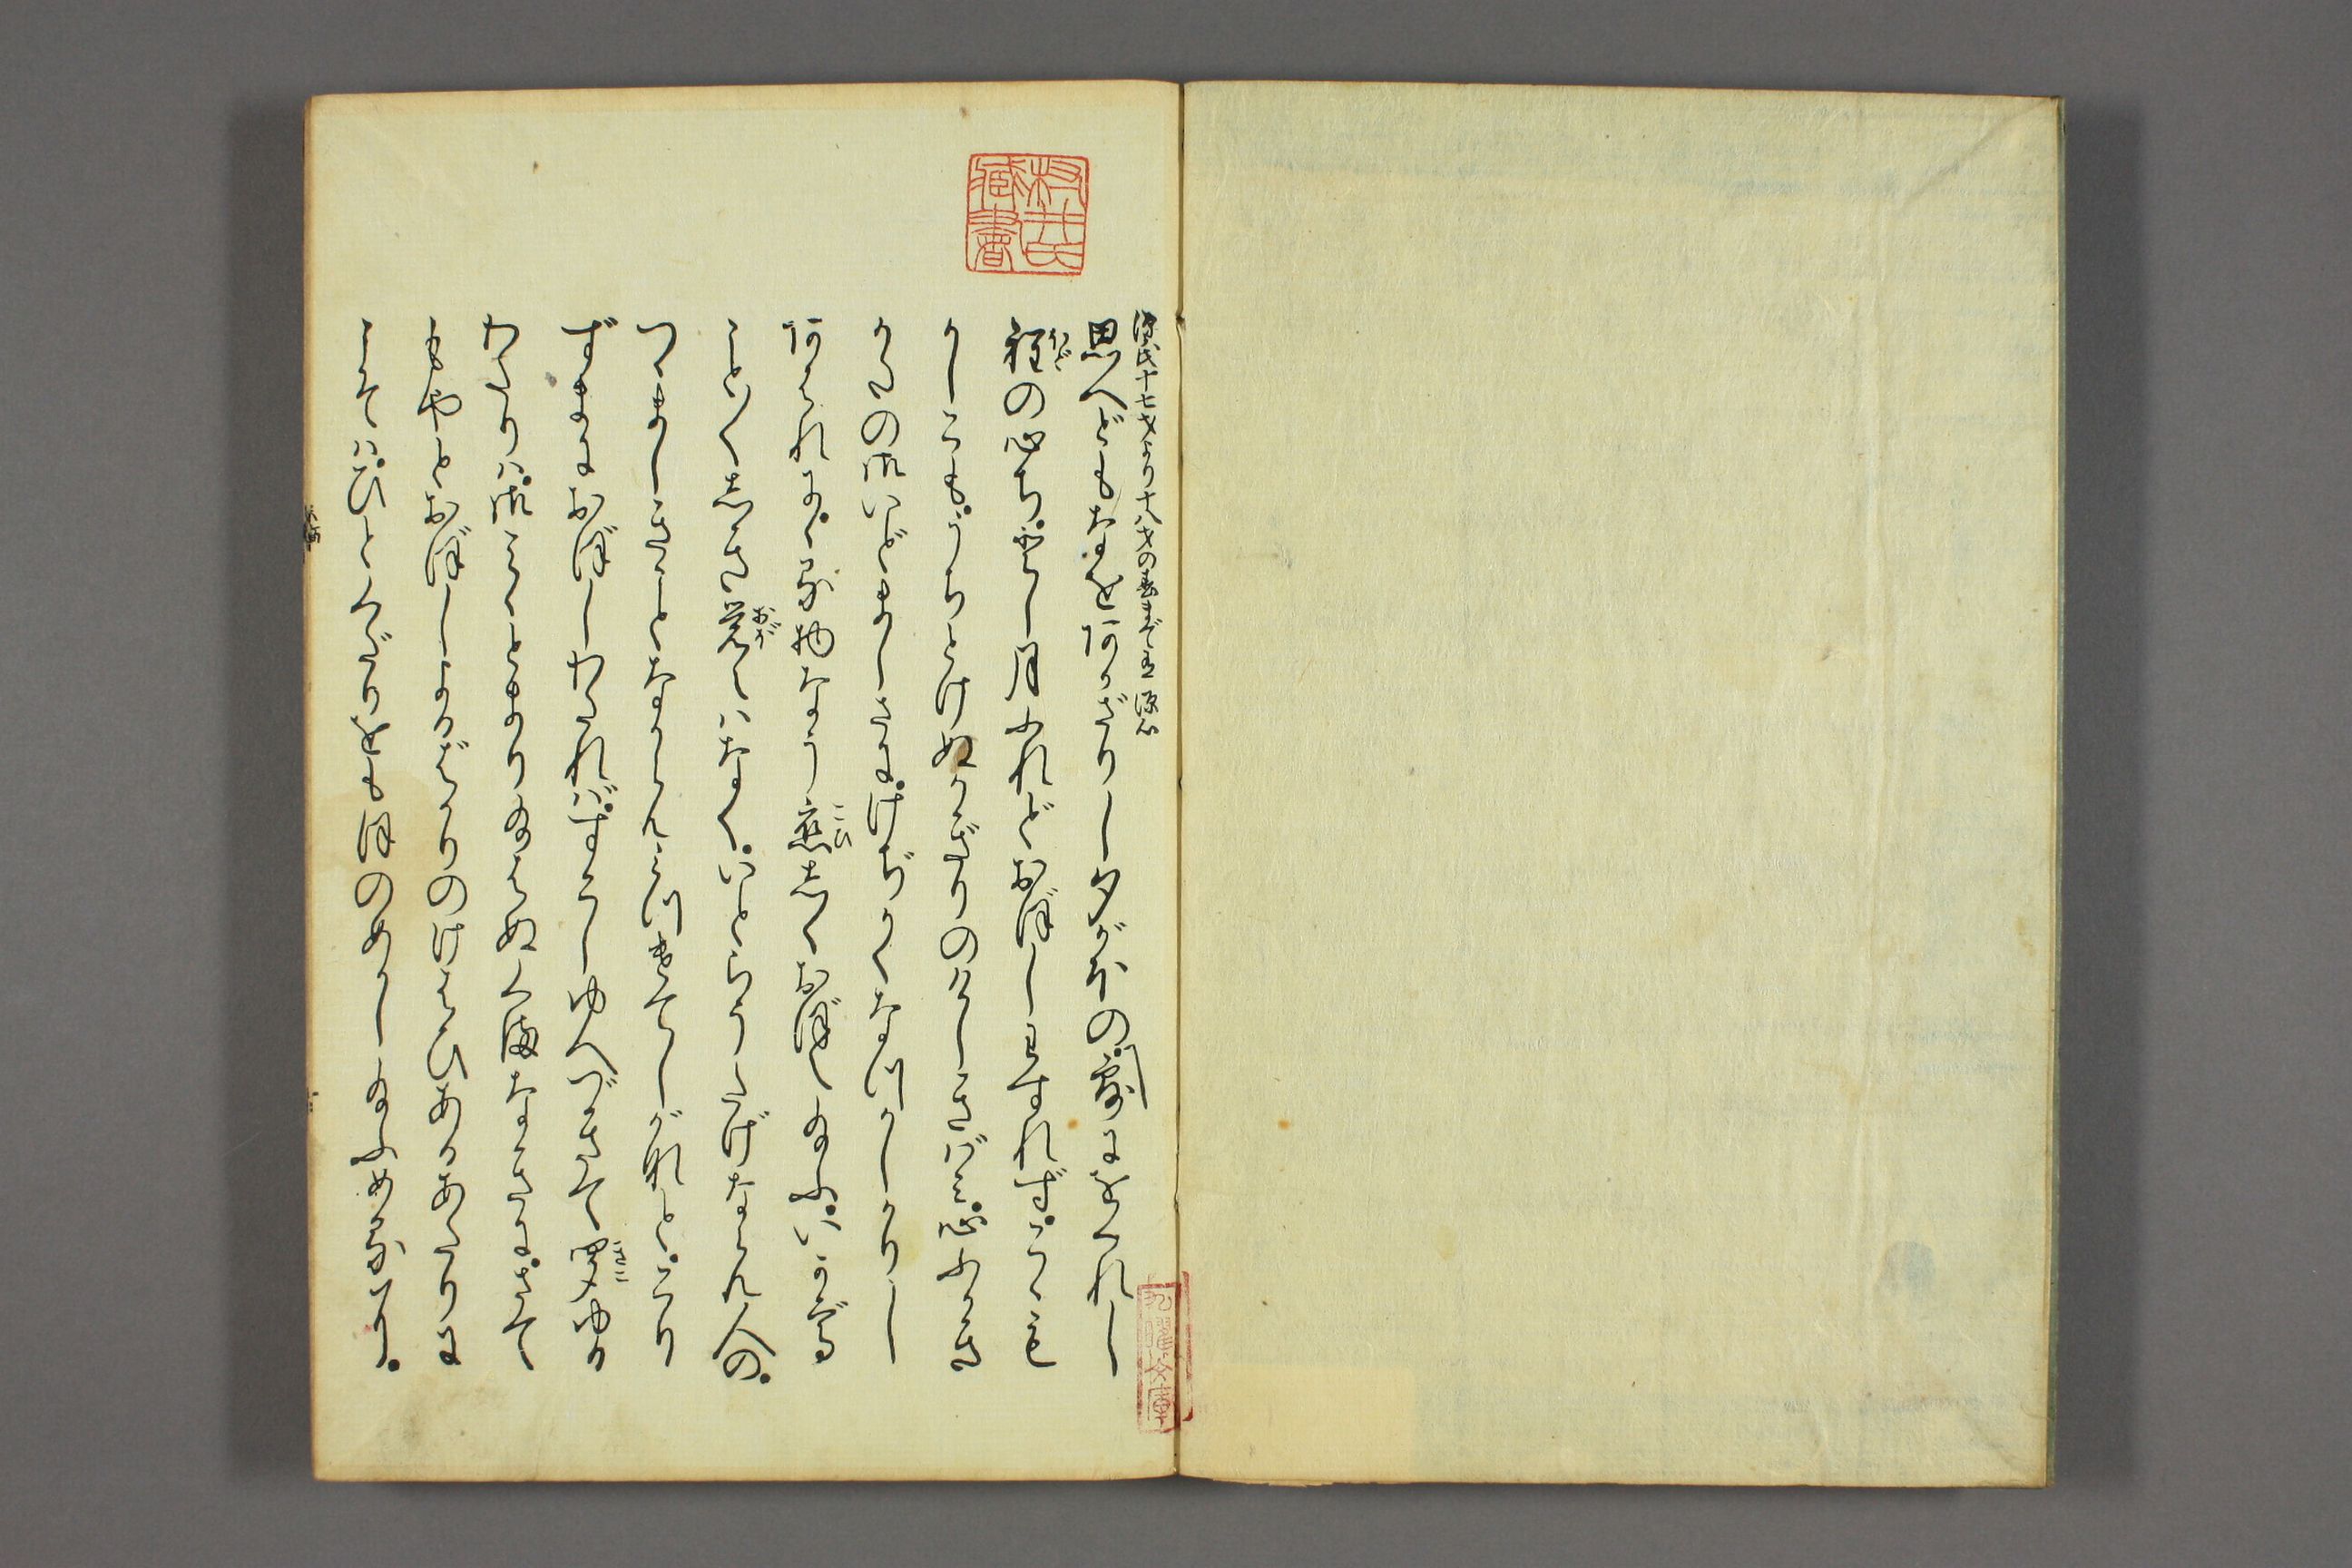 源氏十七才より十八才の春まで
思へどもなをあかざりし夕がほの。露にをくれし
程の心ち。年月ふれどおぼしわすれず。こゝも
かしこも。うちとけぬかぎりのけしきばみ。心ふかき
かたの御いどましさに。けぢかくなつかしかりし
あはれに。にる物なう恋しくおぼえ給ふ。いかでこと
ごとしきおぼえはなく。いとらうたげならん人の。
つゝましきことなからんみつけてしがなと。こり
ずまにおぼしわたれば。すこしゆへづきてきこゆる
わたりは。御みゝとまり給はぬくまなきに。さて
もやとおぼしよるばかりのけはひあるあたりに
こそは。ひとくだりをもほのめかし給ふめるに。